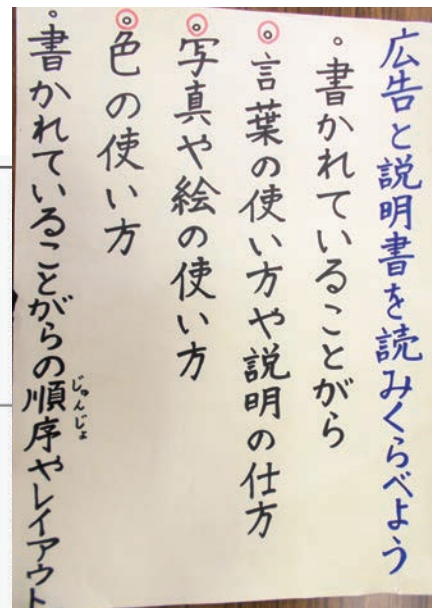 広告と説明書を読みくらべよう
・書かれていることがら
・言葉の使い方や説明の仕方
・写真や絵の使い方
・色の使い方
・書かれていることがらの順序やレイアウト
じゅんじょ